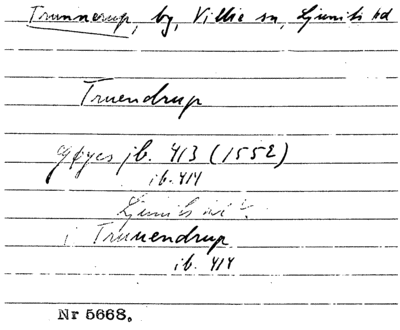 Trunnerup, by, Villie sn, Ljunits hd
Truendrup
Gøyes jb. 413 (1552)
ib. 414
Ljunits
i Trunendrup
ib. 414
Nr 5668.